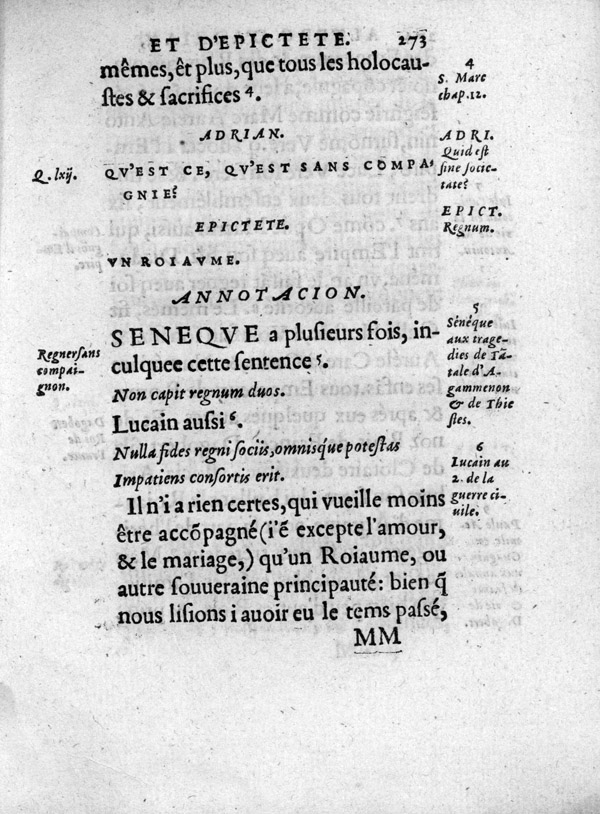 ET D'EPICTETE. 273
mêmes, êt plus, que tous les holocau-
stes & sacrifices 4.
4
S. Marc
chap.12.
ADRIAN.
ADRI.
Quid est
sine socie-
tate?
Q. lxij.
QV'EST CE, QV'EST SANS COMPA-
GNIE?
EPICTETE.
EPICT.
Regnum.
VN ROIAVME.
ANNOTACION.
SENEQVE a plusieurs fois, in-
culquee cette sentence 5.
Regner sans
compai-
gnon.
5
Sénéque
aux trage-
dies de Tã-
tale d'A-
gammenon
& de Thie
stes.
Non capit regnum duos.
Lucain aussi 6.
Nulla fides regni sociis, omnisque potestas
Impatiens consortis erit.
6
Lucain au
2. de la
guerre ci-
uile.
Il n'i a rien certes, qui vueille moins
être accõpagné (i'ẽ excepte l'amour,
& le mariage,) qu'un Roiaume, ou
autre souueraine principauté: bien q̃
nous lisions i auoir eu le tems passé,
MM